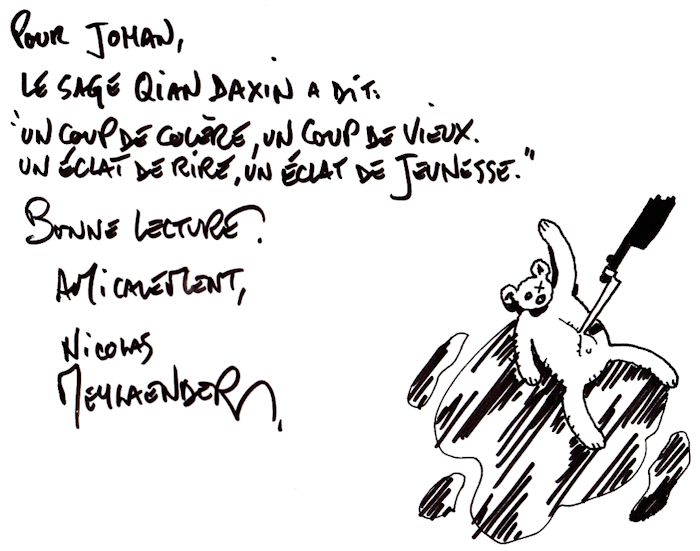 Pour Johan,
Le sage Qian Daxin a dit:
"Un coup de colère, un coup de vieux.
Un éclat de rire, un éclat de jeunesse."
Bonne lecture.
Amicalement,
Nicolas
Meylaender.